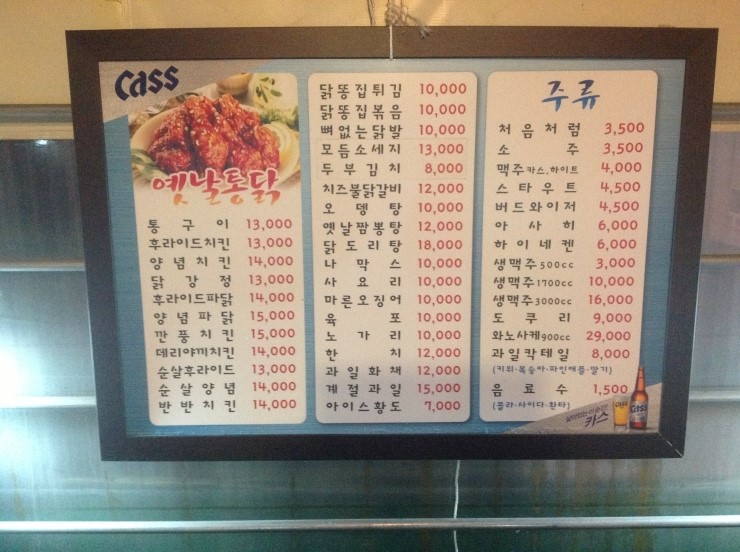 Cass
옛날통닭
통구이 13,000
후라이드치킨 13,000
양념치킨 14,000
닭강정 13,000
후라이드파닭 14,000
양념파닭 15,000
깐풍치킨 15,000
데리야끼치킨 14,000
순살후라이드 13,000
순살양념 14,000
반반치킨 14,000
닭똥집튀김 10,000
닭똥집볶음 10,000
뼈없는닭발 10,000
모듬소세지 13,000
두부김치 8,000
치즈불닭갈비 12,000
오뎅탕 10,000
옛날짬뽕탕 12,000
닭도리탕 18,000
나막스 10,000
사요리 10,000
마른오징어 10,000
육포 10,000
노가리 10,000
한치 12,000
과일화채 12,000
계절과일 15,000
아이스황도 7,000
주류
처음처럼 3,500
소주 3,500
맥주카스,하이트 4,000
스타우트 4,500
버드와이저 4,500
아사히 6,000
하이네켄 6,000
생맥주500cc 3,000
생맥주1700cc 10,000
생맥주3000cc 16,000
도쿠리 9,000
와노사케900cc 29,000
과일칵테일 8,000
(키위·복숭아·파인애플·딸기)
음료수 1,500
(콜라·사이다·환타)
카스
Cass